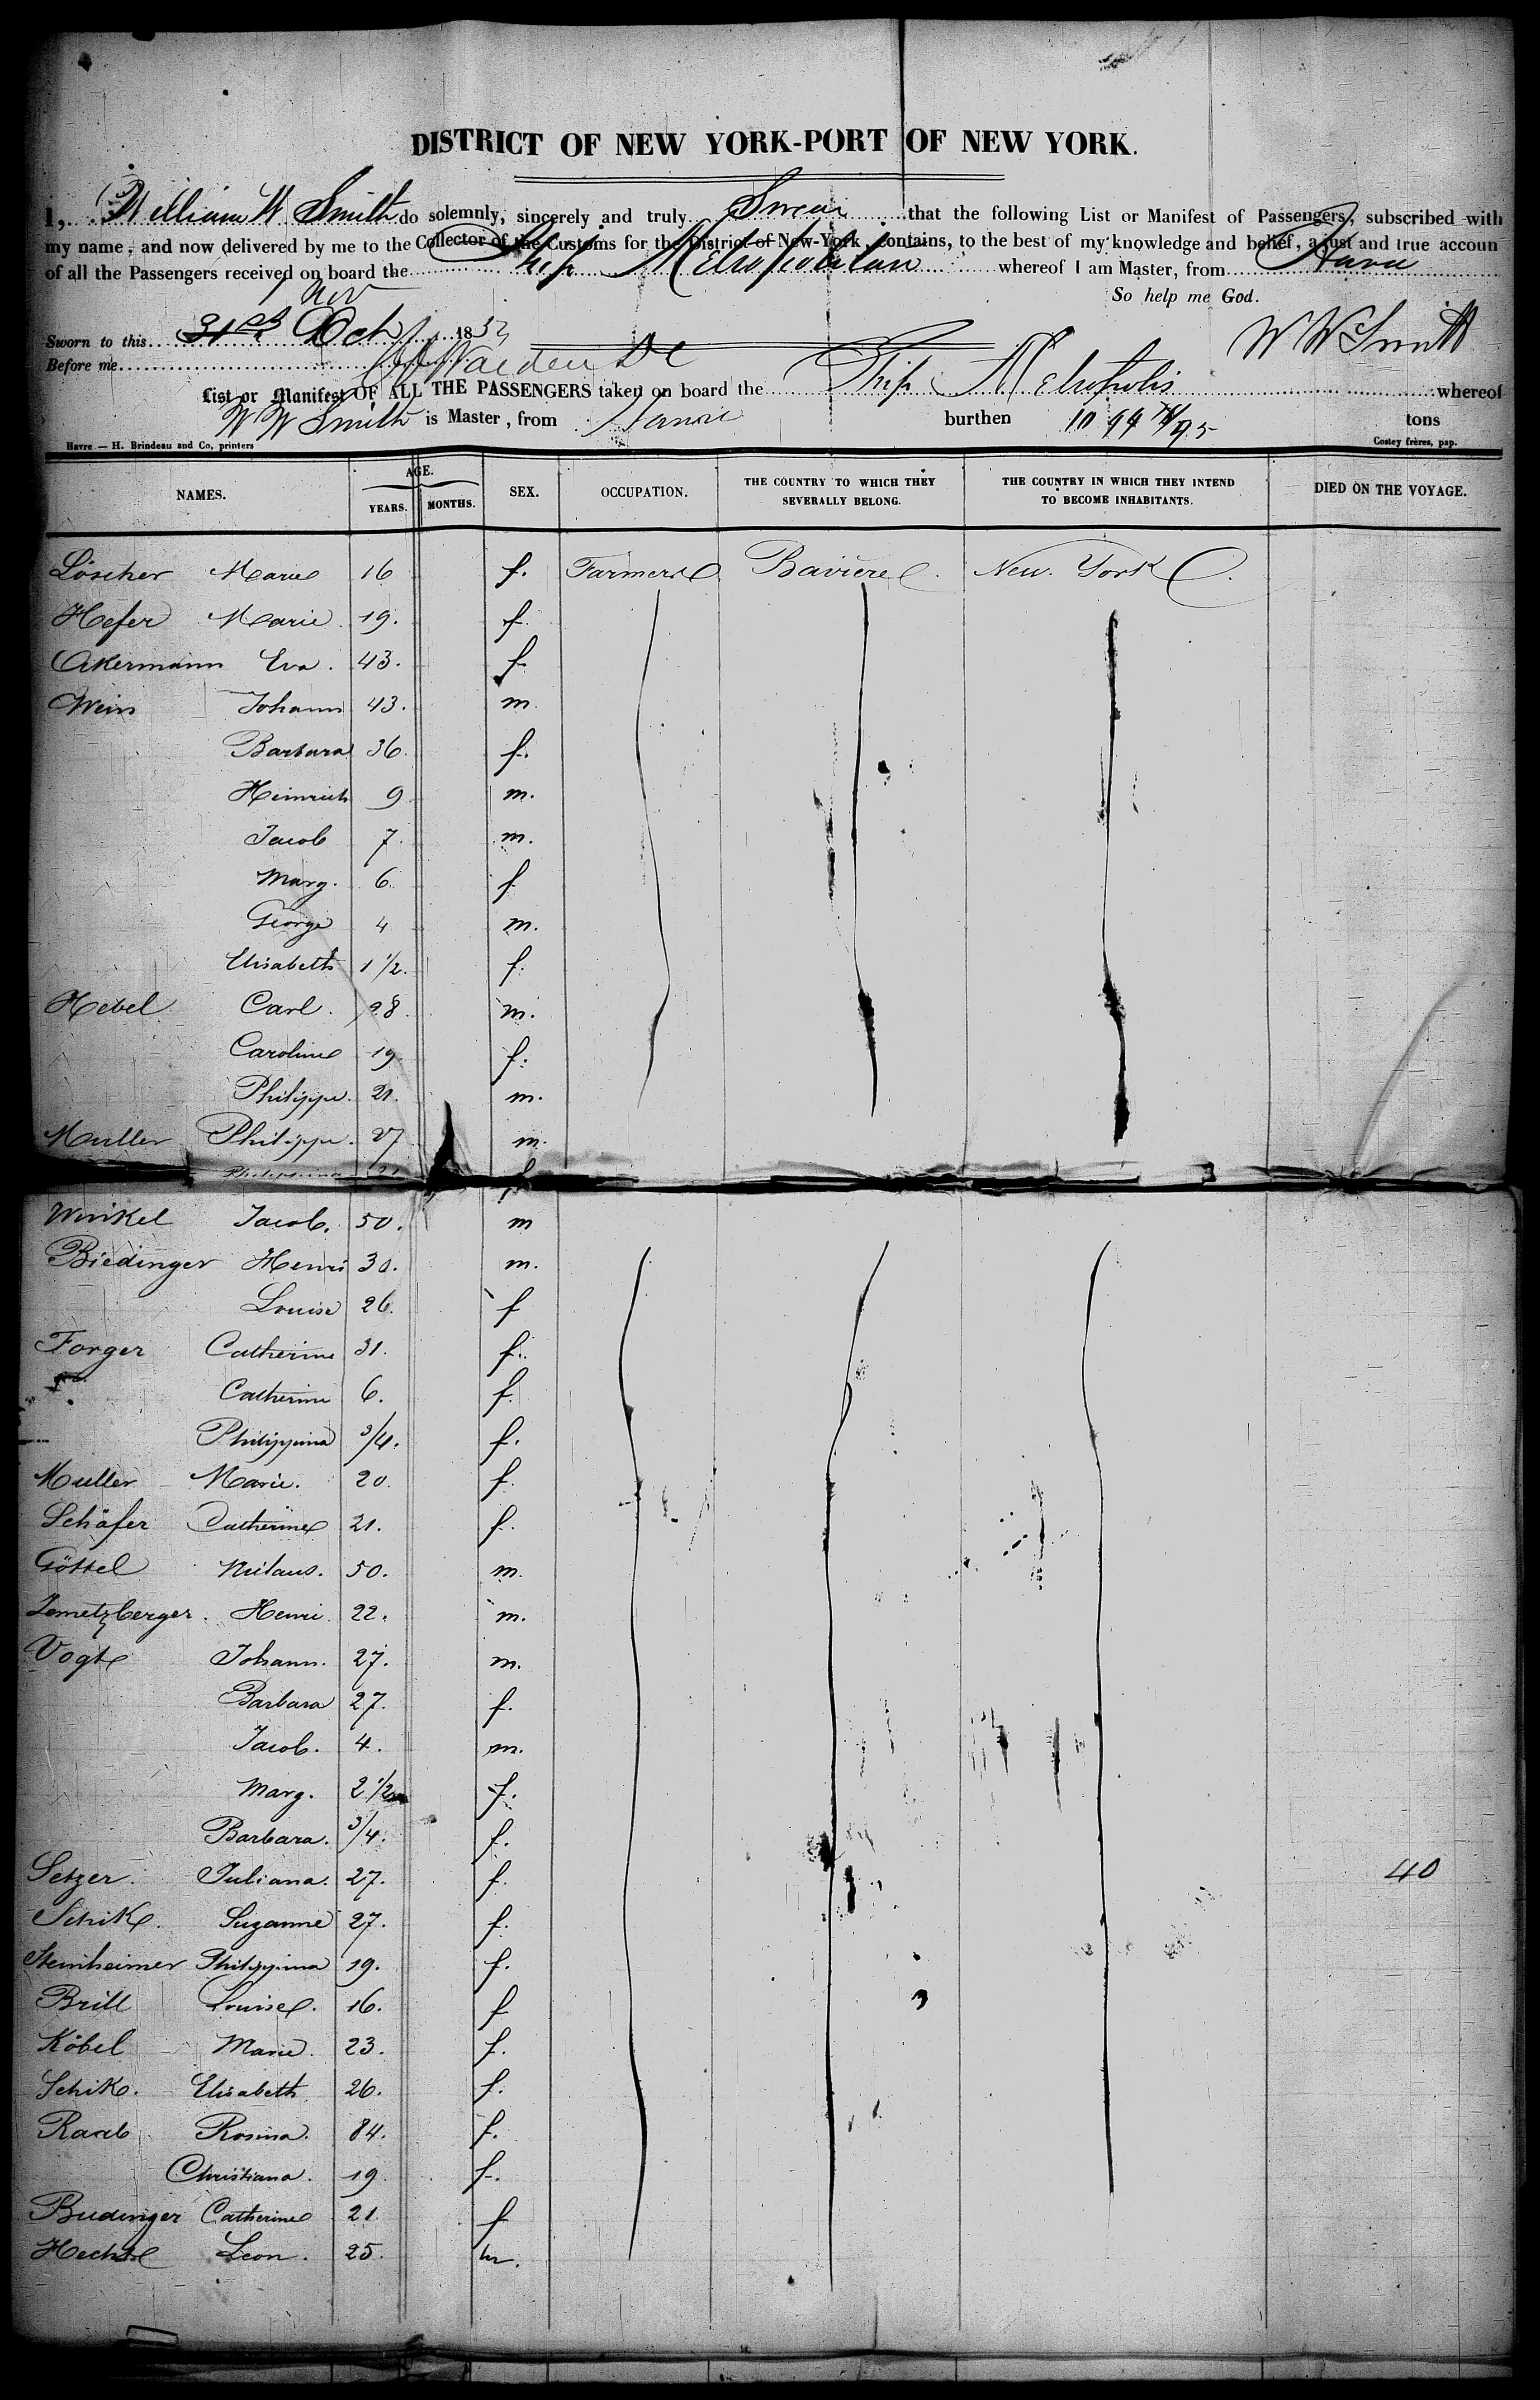 DISTRICT OF NEW YORK-PORT OF NEW YORK.
I, William W Smith do solemnly, sincerely and truly Swear that the following List or Manifest of Passengers, subscribed with
my name, and now delivered by me to the Collector of the Customs for the District of New-York, contains, to the best of my knowledge and belief, a just and true accoun
of all the Passengers received on board the Ship Metropolitan whereof I am Master, from Havre
So help me God.
1 Nov
Sworn to this 31st Oct 185
W W Smith
Before me
List or Manifest OF ALL THE PASSENGERS taken on board the Ship Metropolis whereof
W W Smith is Master, from Havre burthen tons
Havre. — H. Brindeau and Co, printers Costey frères, pap.
NAMES. AGE. YEARS. MONTHS. SEX. OCCUPATION. THE COUNTRY TO WHICH THEY SEVERALLY BELONG. THE COUNTRY IN WHICH THEY INTEND TO BECOME INHABITANTS. DIED ON THE VOYAGE.
Löscher Marie 16 f. Farmers Baviere. New. York.
Hefer Marie. 19. f.
Akermann Eva. 43. f.
Wein Johann 43. m.
Barbara 36. f.
Heinrich 9. m.
Jacob 7. m.
Marg. 6. f
George 4 m.
Elisabeth 1 1/2. f.
Hebel Carl. 28. m.
Caroline 19. f.
Philippe. 21. m.
Muller Philippe. 27 m.
Philippina 21 f
Winkel Jacob. 50. m
Biedinger Henri 30. m.
Louise 26. f
Forger Catherine 31. f.
Catherine 6. f.
Philippina 3/4. f.
Muller Marie. 20. f.
Schäfer Catherine 21. f.
Göttel Niclaus. 50. m.
Jemetzberger. Henri. 22. m.
Vogt Johann. 27. m.
Barbara 27. f.
Jacob. 4. m.
Marg. 2 1/2 f.
Barbara. 3/4. f.
Setzer. Juliana. 27. f. 40
Schik. Suzanne 27. f.
Steinheimer Philippina 19. f.
Brill Louise. 16. f
Köbel Marie. 23. f.
Schik. Elisabeth 26. f.
Raab Rosina. 84. f.
Christiana. 19. f.
Budinger Catherine 21 f
Hecht Leon. 25. m.